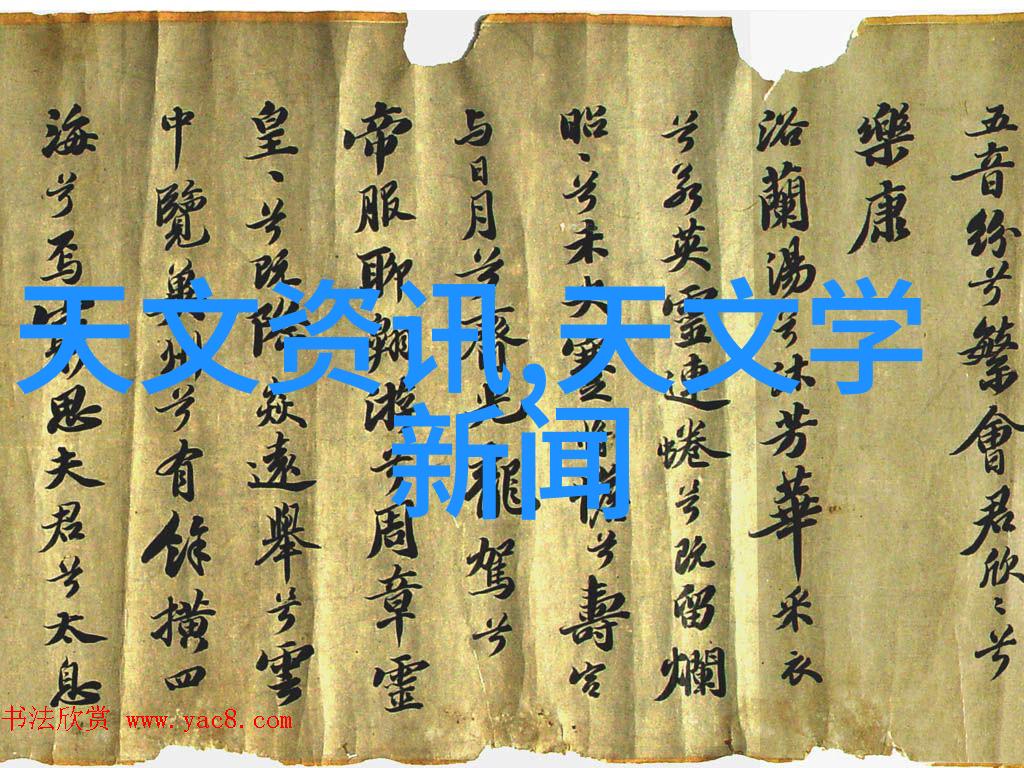 五音紛兮繁會君欣〻兮
樂康
浴蘭湯兮沐芳華采衣
兮若英靈連蜷兮既留爛
昭〻兮未央蹇將憺兮壽宮
与日月兮齊光龍駕兮
帝服聊翱游兮周章靈
皇〻兮既降猋遠舉兮雲
中覽冀州兮有餘橫四
海兮焉窮思夫君兮太息
天文资讯,天文学
新闻
书法欣赏 www.yac8.com